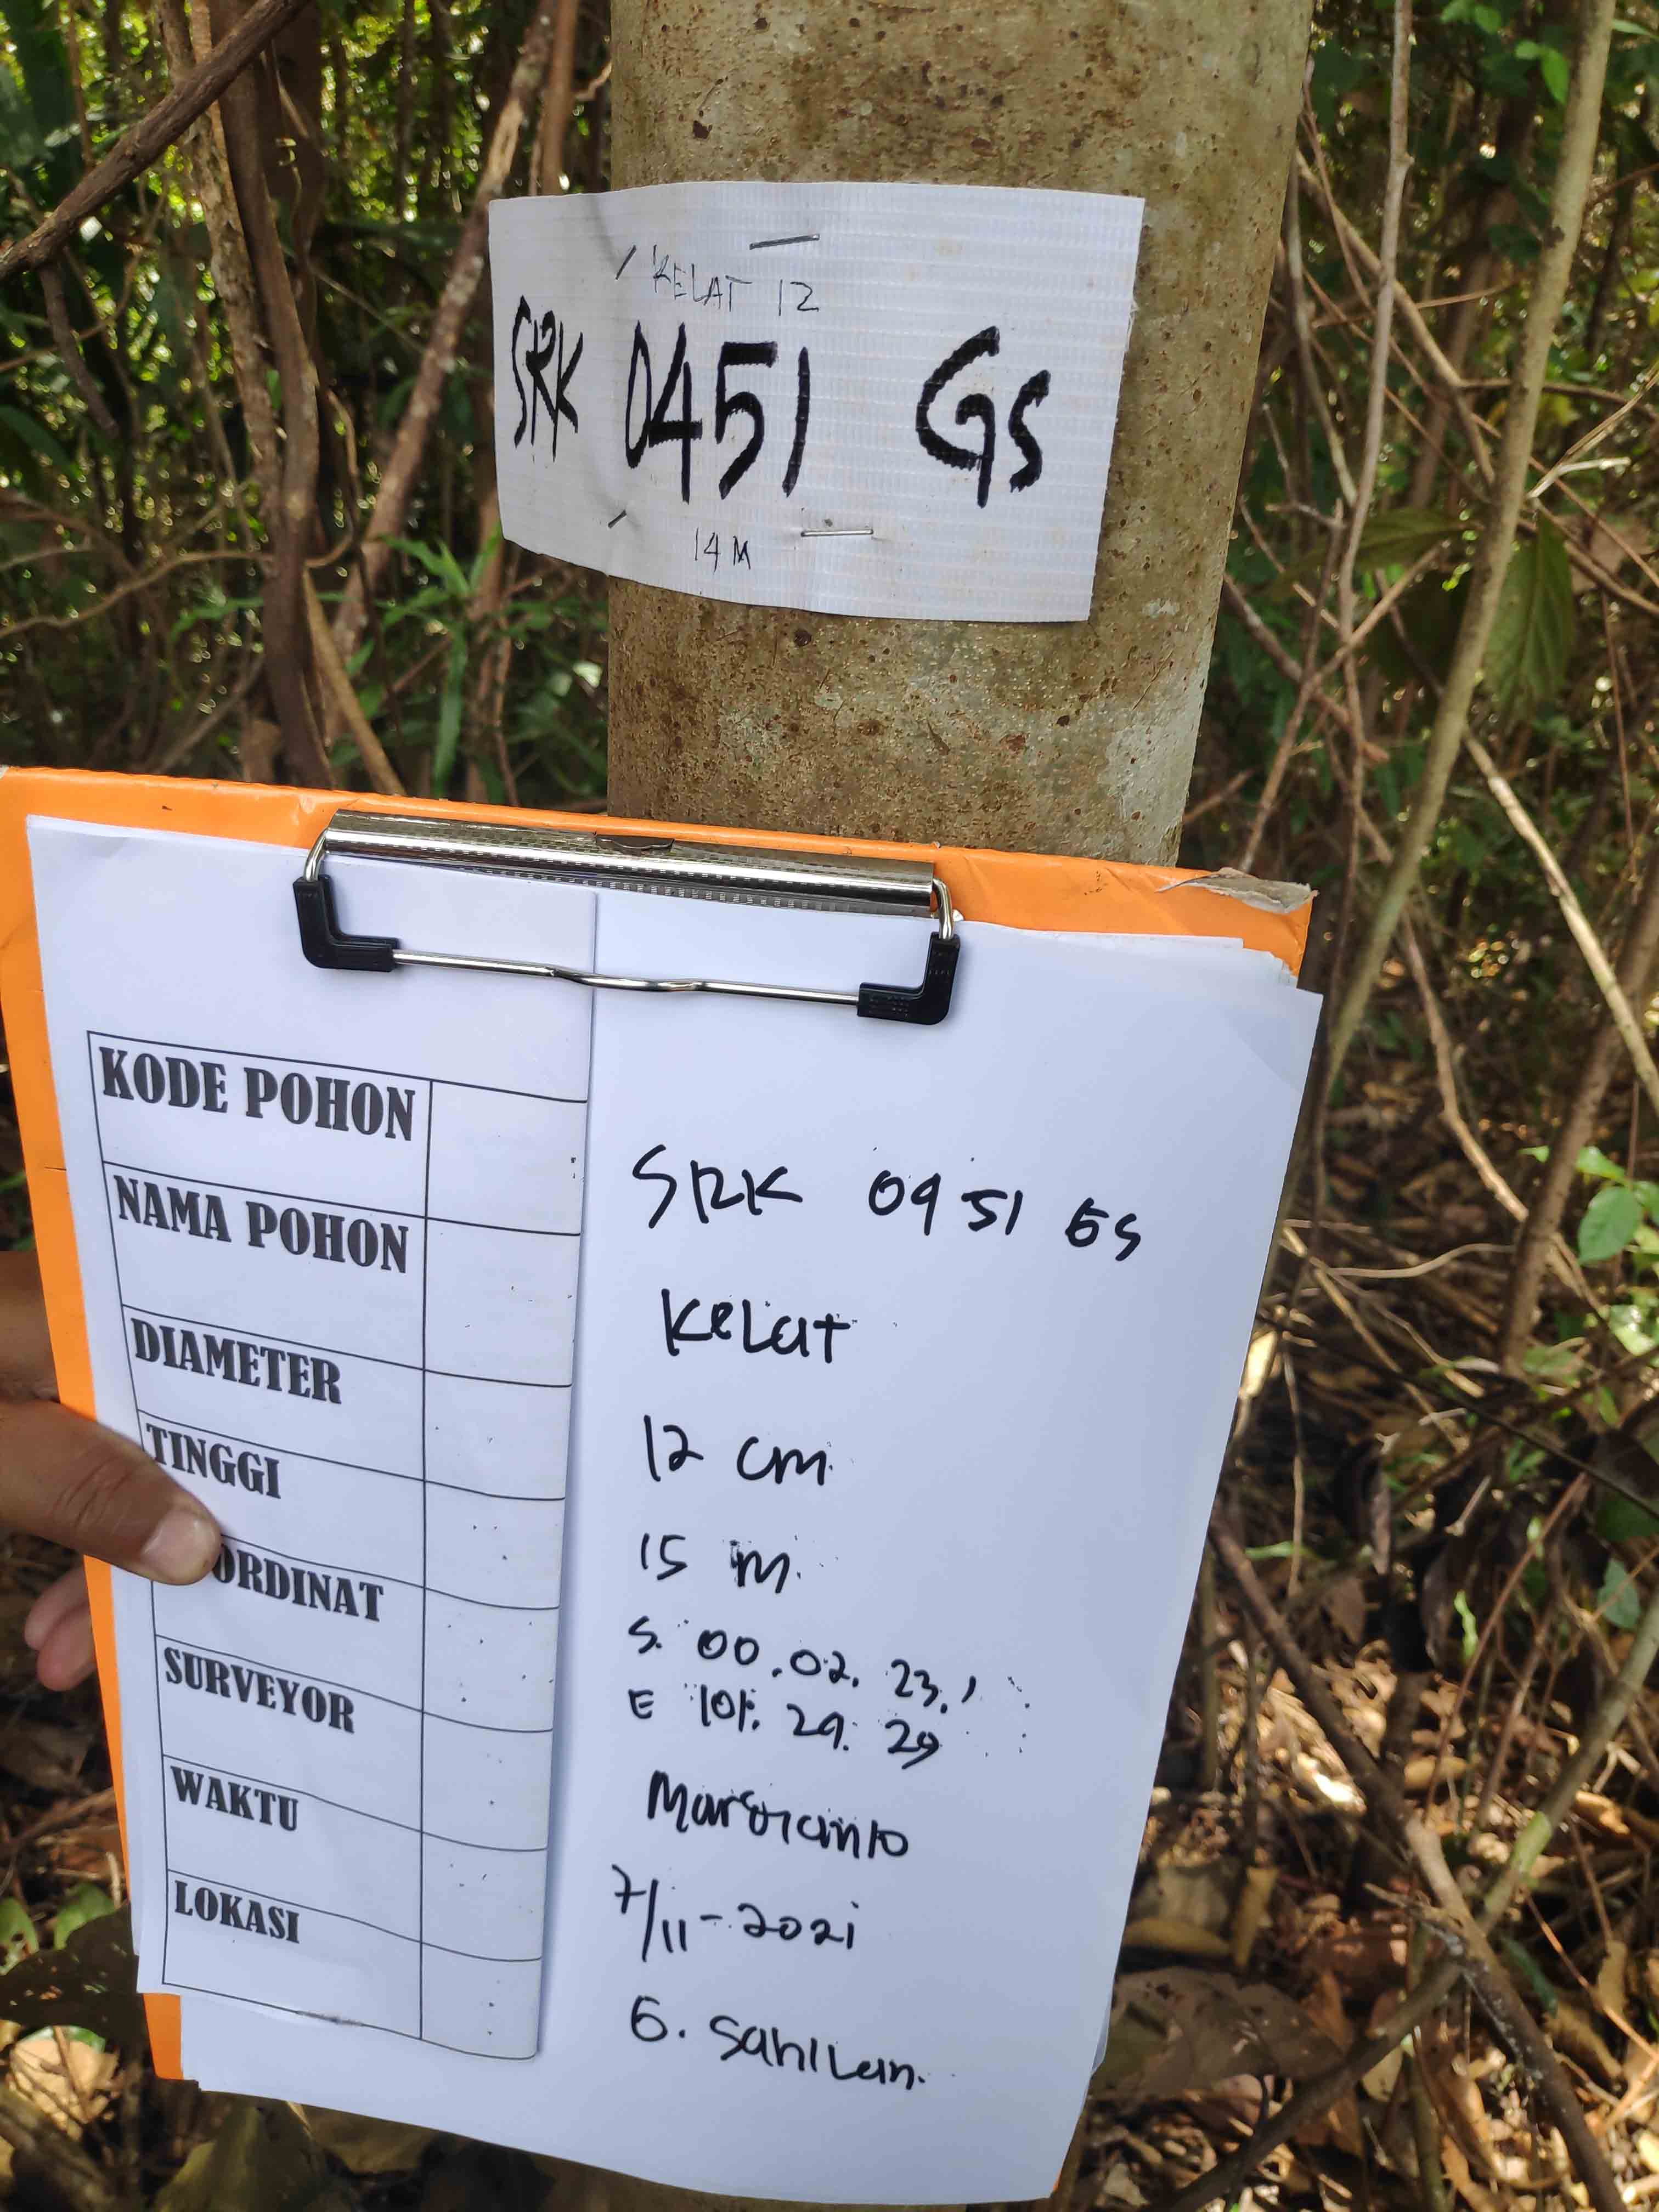 KELAT 12
SRK 0451 GS
14 M
KODE POHON
SRK 0451 GS
NAMA POHON
KeLat
DIAMETER
12 cm
TINGGI
15 m
ORDINAT
S. 00.02.23.'
E 101. 29. 29
SURVEYOR
WAKTU
7/11-2021
LOKASI
G. Sahilan.